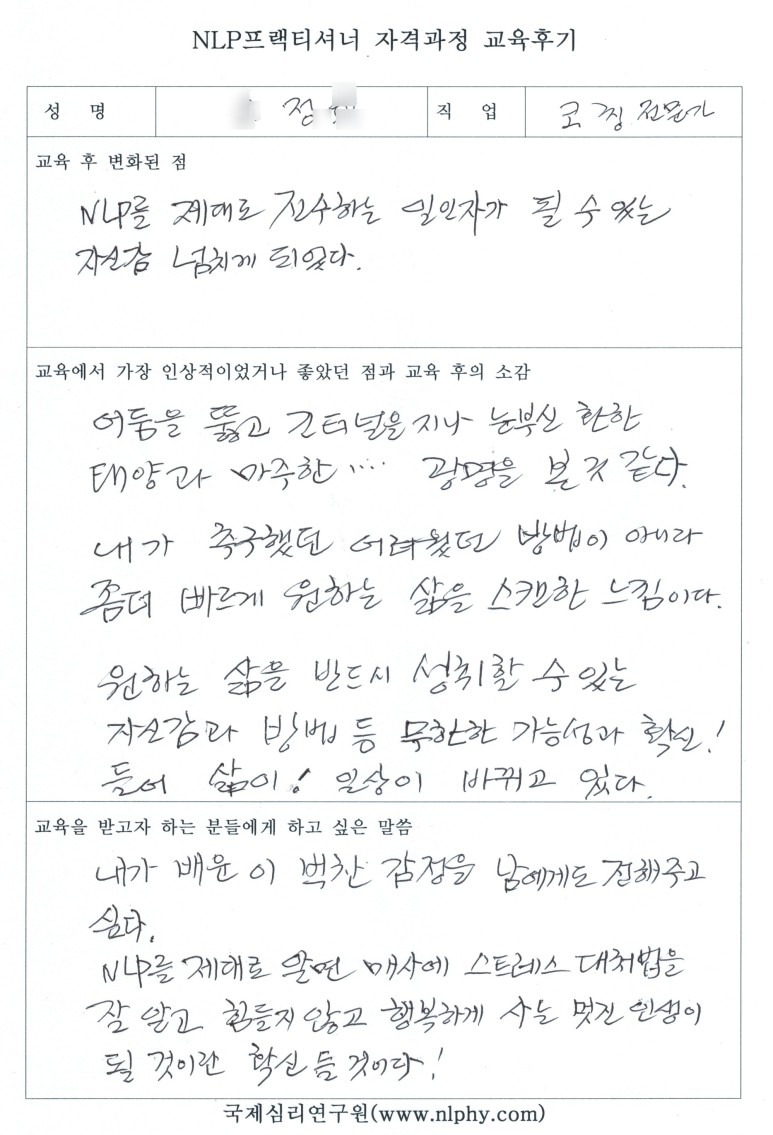 NLP프랙티셔너 자격과정 교육후기
성 명 정 직 업 코칭전문가
교육 후 변화된 점
NLP를 제대로 전수하는 일인자가 될 수 있는
자신감 넘치게 되었다.
교육에서 가장 인상적이었거나 좋았던 점과 교육 후의 소감
어둠을 뚫고 긴터널을 지나 눈부신 환한
태양과 마주한 .... 광명을 본 것 같다.
내가 추구했던 어려웠던 방법이 아니라
좀더 빠르게 원하는 삶을 스캔한 느낌이다.
원하는 삶을 반드시 성취할 수 있는
자신감과 방법 등 무한한 가능성과 확신!
들어 삶이! 일상이 바뀌고 있다.
교육을 받고자 하는 분들에게 하고 싶은 말씀
내가 배운 이 벅찬 감정을 남에게도 전해주고
싶다.
NLP를 제대로 알면 매사에 스트레스 대처법을
잘 알고 힘들지 않고 행복하게 사는 멋진 인생이
될 것이란 확신 듬 것이다!
국제심리연구원(www.nlphy.com)